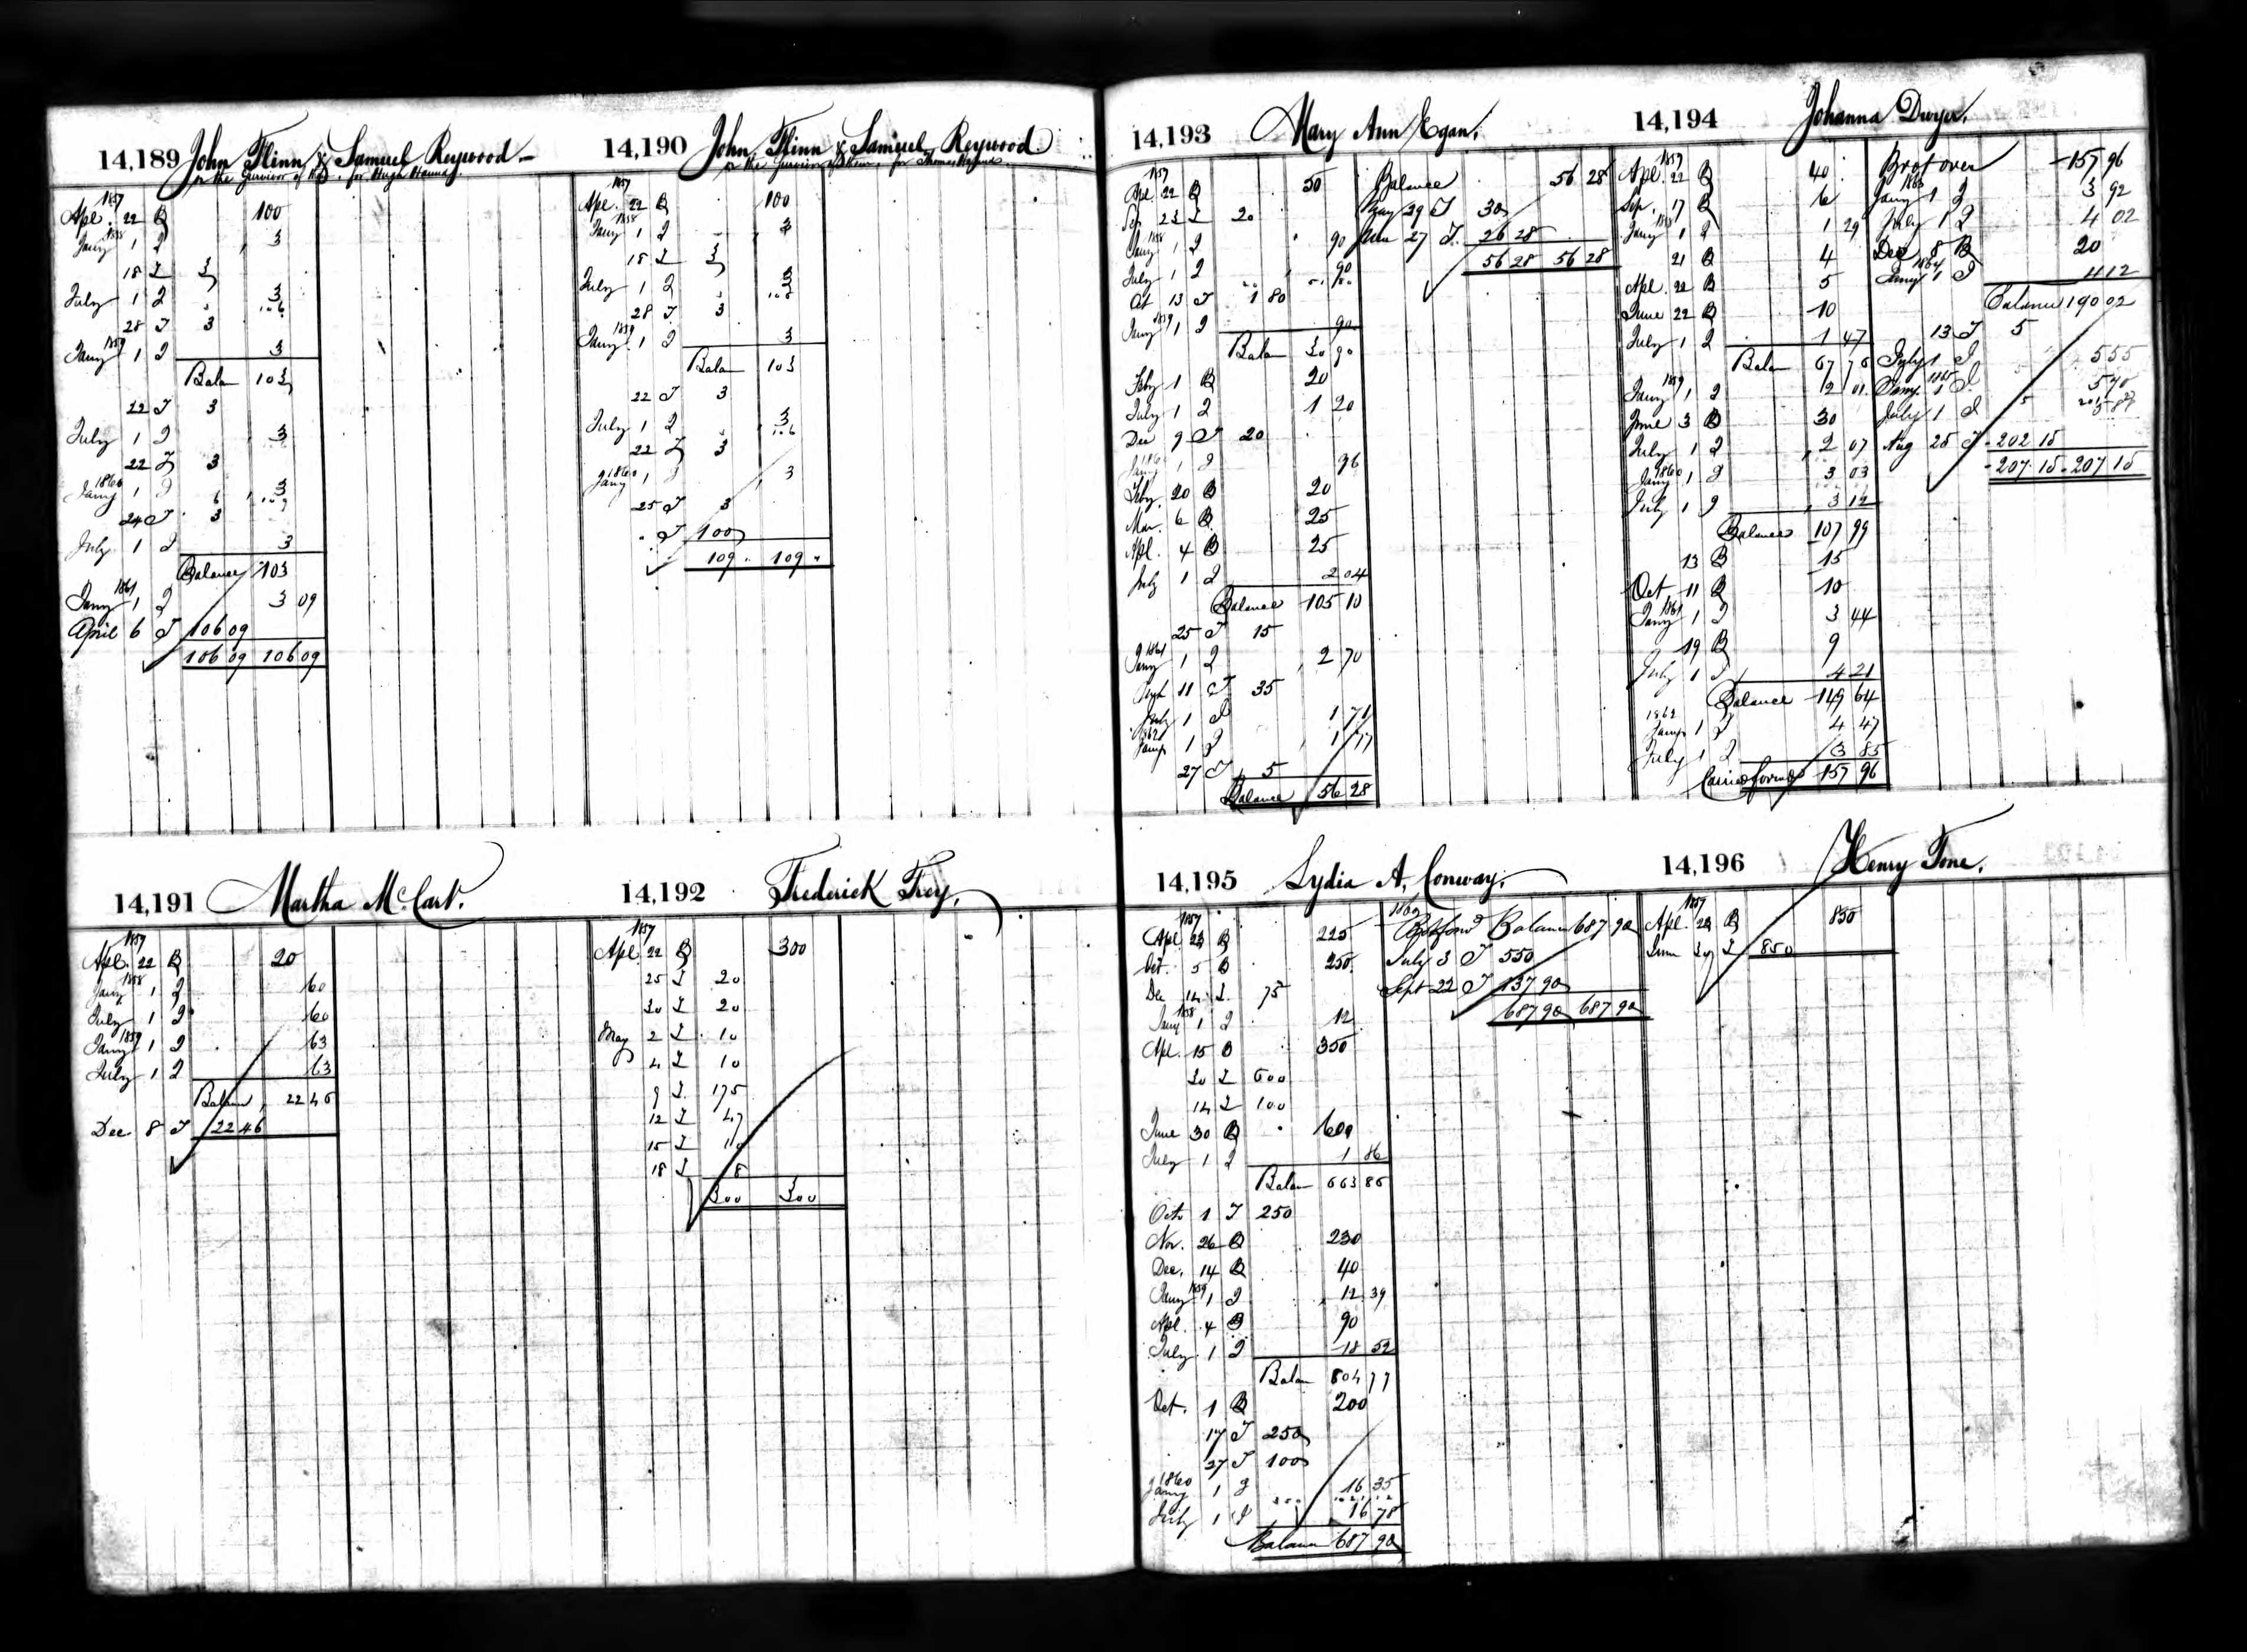 14,189 John Flinn & Samuel Reywood
or the Survivor of them for Hugh Hanna
1857
Apl. 22 B 100
1858
Jany 1 I 3
18 T 3
July 1 I 3
28 T 3
1859
Jany 1 I 3
Balan 103
22 T 3
July 1 I 3
22 T 3
1860
Jany 1 I 3
24 T 3
July 1 I 3
Balance 103
1861
Jany 1 I 3 09
April 6 T 106 09
106 09 106 09
14,190 John Flinn & Samuel Reywood
or the Survivor of them for Thomas
1857
Apl. 22 B 100
1858
Jany 1 I 3
18 T 3
July 1 I 3
28 T 3
1859
Jany 1 I 3
Balan 103
22 T 3
July 1 I 3
22 T 3
1860
Jany 1 I 3
25 T 3
" T 100
109 " 109 "
14,191 Martha McCart.
1857
Apl. 22 B 20
1858
Jany 1 I 60
July 1 I 60
1859
Jany 1 I 63
July 1 I 63
Balan 22 46
Dec. 8 T 22 46
14,192 Frederick Frey.
1857
Apl. 22 B 300
25 T 20
30 T 20
May 2 T 10
4 T 10
9 T 175
12 T 47
15 T 10
18 T 8
300 300
14,193 Mary Ann Egan.
1857
Apl. 22 B 50
Sep. 23 T 20
1858
Jany 1 I 90
July 1 I 90
Oct 13 T 1 80
1859
Jany 1 I 90
Balan 30 90
Feby 1 B 20
July 1 I 1 20
Dec 9 T 20
1860
Jany 1 I 96
Feby. 20 B 20
Mar. 6 B 25
Apl. 4 B 25
July 1 I 2 04
Balance 105 10
25 T 15
1861
Jany 1 I 2 70
11 T 35
July 1 I 1 71
1862
Jany 1 I 1 77
27 T 5
Balance 56 28
Balance 56 28
May 29 T 30
27 T 26 28
56 28 56 28
14,194 Johanna Dwyer.
1857
Apl. 22 B 40
Sep. 17 B 6
1858
Jany 1 I 1 29
21 B 4
Apl. 22 B 5
June 22 B 10
July 1 I 1 47
Balan 67 76
1859
Jany 1 I 2 01
June 3 B 30
July 1 I 2 07
1860
Jany 1 I 3 03
July 1 I 3 12
Balance 107 99
13 B 15
Oct. 11 B 10
1861
Jany 1 I 3 44
19 B 9
July 1 I 4 21
Balance 149 64
1862
Jany 1 I 4 47
July 1 I 3 85
Carried forwd 157 96
Brot over 157 96
1863
Jany 1 I 3 92
July 1 I 4 02
Dec 8 B 20
1864
Jany 1 I 4 12
Balance 190 02
13 T 5
July 1 I 5 55
1865
Jany 1 I 5 70
July 1 I 5 88
Aug 25 T 202 15
207 15 207 15
14,195 Lydia A. Conway.
1857
Apl. 23 B 225
Oct. 5 B 250
Dec 14 T 75
1858
Jany 1 I 12
Apl. 15 B 350
30 T 600
14 T 100
June 30 B 600
July 1 I 1 86
Balan 663 86
Oct. 1 T 250
Nov. 26 B 230
Dec. 14 B 40
1859
Jany 1 I 12 39
Apl. 4 B 90
July 1 I 18 52
Balan 804 77
Oct. 1 B 200
17 T 250
27 T 100
1860
Jany 1 I 16 35
July 1 I 16 78
Balance 687 90
1860
Balance 687 90
July 3 T 550
Sept 22 T 137 90
687 90 687 90
14,196 Henry Tone.
1857
Apl. 23 B 850
June 30 T 850